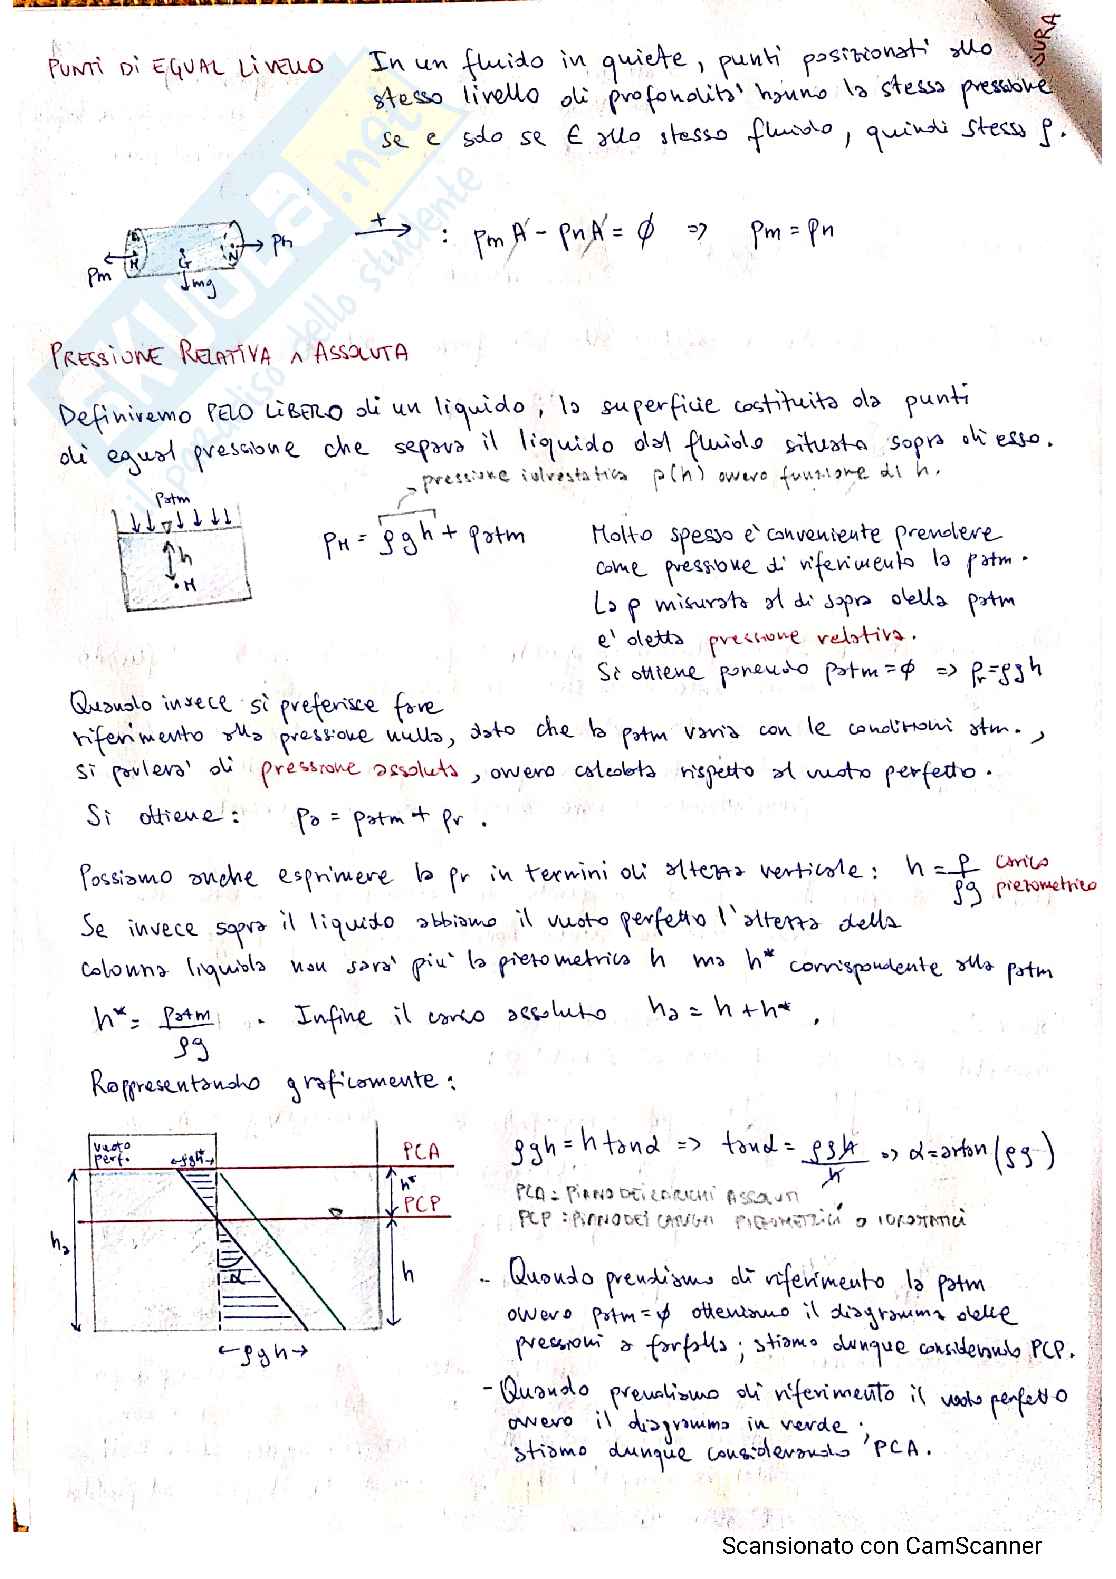 SURA
PUNTI DI EGUAL LIVELLO In un fluido in quiete, punti posizionati allo
stesso livello di profondità hanno la stessa pressione
se e solo se ∈ allo stesso fluido, quindi stessa ρ.
pm M G mg N pn + : pm A - pn A = ∅ => pm = pn
PRESSIONE RELATIVA ∧ ASSOLUTA
Definiremo PELO LIBERO di un liquido, la superficie costituita da punti
di egual pressione che separa il liquido dal fluido situato sopra di esso.
pressione idrostatica p(h) ovvero funzione di h.
patm
h
M
pM = ρgh + patm
Molto spesso è conveniente prendere
come pressione di riferimento la patm.
La p misurata al di sopra della patm
e' detta pressione relativa.
Si ottiene ponendo patm = ∅ => pr = ρgh
Quando invece si preferisce fare
riferimento alla pressione nulla, dato che la patm varia con le condizioni atm.,
si parlerà di pressione assoluta, ovvero calcolata rispetto al vuoto perfetto.
Si ottiene: pa = patm + pr .
Possiamo anche esprimere la pr in termini di altezza verticale: h = p/ρg carico piezometrico
Se invece sopra il liquido abbiamo il vuoto perfetto l'altezza della
colonna liquida non sarà più la piezometrica h ma h* corrispondente alla patm
h* = patm/ρg . Infine il carico assoluto ha = h + h* .
Rappresentando graficamente:
vuoto
perf.
ρgh*
PCA
h*
PCP
ha
α
h
ρgh
ρgh = h tanα => tanα = ρgh/h => α = artan(ρg)
PCA: PIANO DEI CARICHI ASSOLUTI
PCP: PIANO DEI CARICHI PIEZOMETRICI o IDROSTATICI
- Quando prendiamo di riferimento la patm
ovvero patm = ∅ otteniamo il diagramma delle
pressioni a farfalla; stiamo dunque considerando PCP.
- Quando prendiamo di riferimento il vuoto perfetto
ovvero il diagramma in verde;
stiamo dunque considerando PCA.
SKUOLA.net
il paradiso dello studente
Scansionato con CamScanner